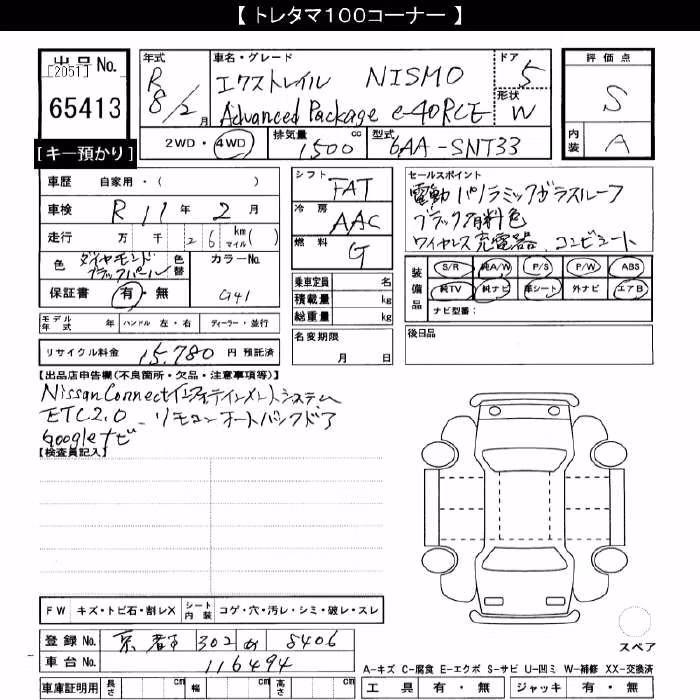 【 トレタマ１００コーナー 】
出品No.
[2051]
65413
【キー預かり】
年式
R 8/2月
車名・グレード
エクストレイル NISMO
Advanced Package e-4ORCE
ドア
5
形状
W
評価点
S
内装
A
2WD・4WD
排気量
1500 cc
型式
6AA-SNT33
車歴 自家用・( )
車検 R 11年 2月
走行 万 千 26 km マイル ( )
色 ダイヤモンドブラックパール
色替
カラーNo.
G41
保証書 有・無
シフト
FAT
冷房
AAC
燃料
G
乗車定員 名
積載量 kg
総重量 kg
セールスポイント
電動パノラミックガラスルーフ
ブラック有料色
ワイヤレス充電器、コンビシート
装備品
S/R 純A/W P/S P/W ABS
純TV 純ナビ 革シート 外ナビ エアB
ナビ型番：
モデル年式 年 ハンドル 左・右 ディーラー・並行
名変期限
月 日
後日品
リサイクル料金 15,780 円 預託済
【出品店申告欄(不良箇所・欠品・注意事項等)】
NissanConnectインフォテインメントシステム
ETC2.0、リモコンオートバックドア
Googleナビ
【検査員記入】
FW キズ・トビ石・割レX シート内装 コゲ・穴・汚レ・シミ・破レ・スレ
登録No. 京都 302 8406
車台No. 116494
車庫証明用 長さ cm 幅 cm 高さ cm
スペア
A-キズ C-腐食 E-エクボ S-サビ U-凹ミ W-補修 XX-交換済
工具 有・無 ジャッキ 有・無